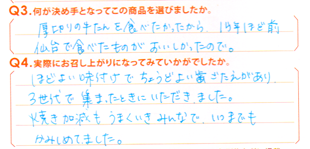 Q3.何が決め手となってこの商品を選びましたか。
厚切りの牛たんを食べたかったから、15年ほど前
仙台で食べたものがおいしかったので。
Q4.実際にお召し上がりになってみていかがでしたか。
ほどよい味付けでちょうどよい歯ごたえがあり
3世代で集まったときにいただきました。
焼き加減もうまくいきみんなで、いつまでも
かみしめてました。